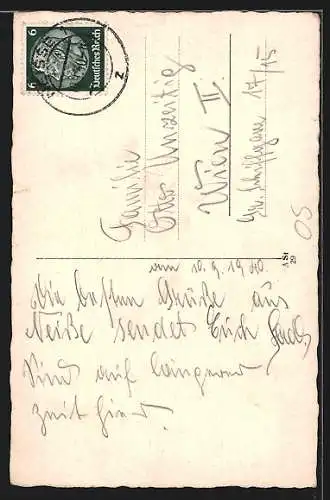 6 6
Deutsches Reich
Z
Familie
Otto Unzeitig
Wien II.
Gr. Schiffgasse 17/15
OS
A St
29
vom 10. 9. 1940.
Die besten Grüße aus
Neiße sendet Euch
Sind auf längerer
Zeit hier.